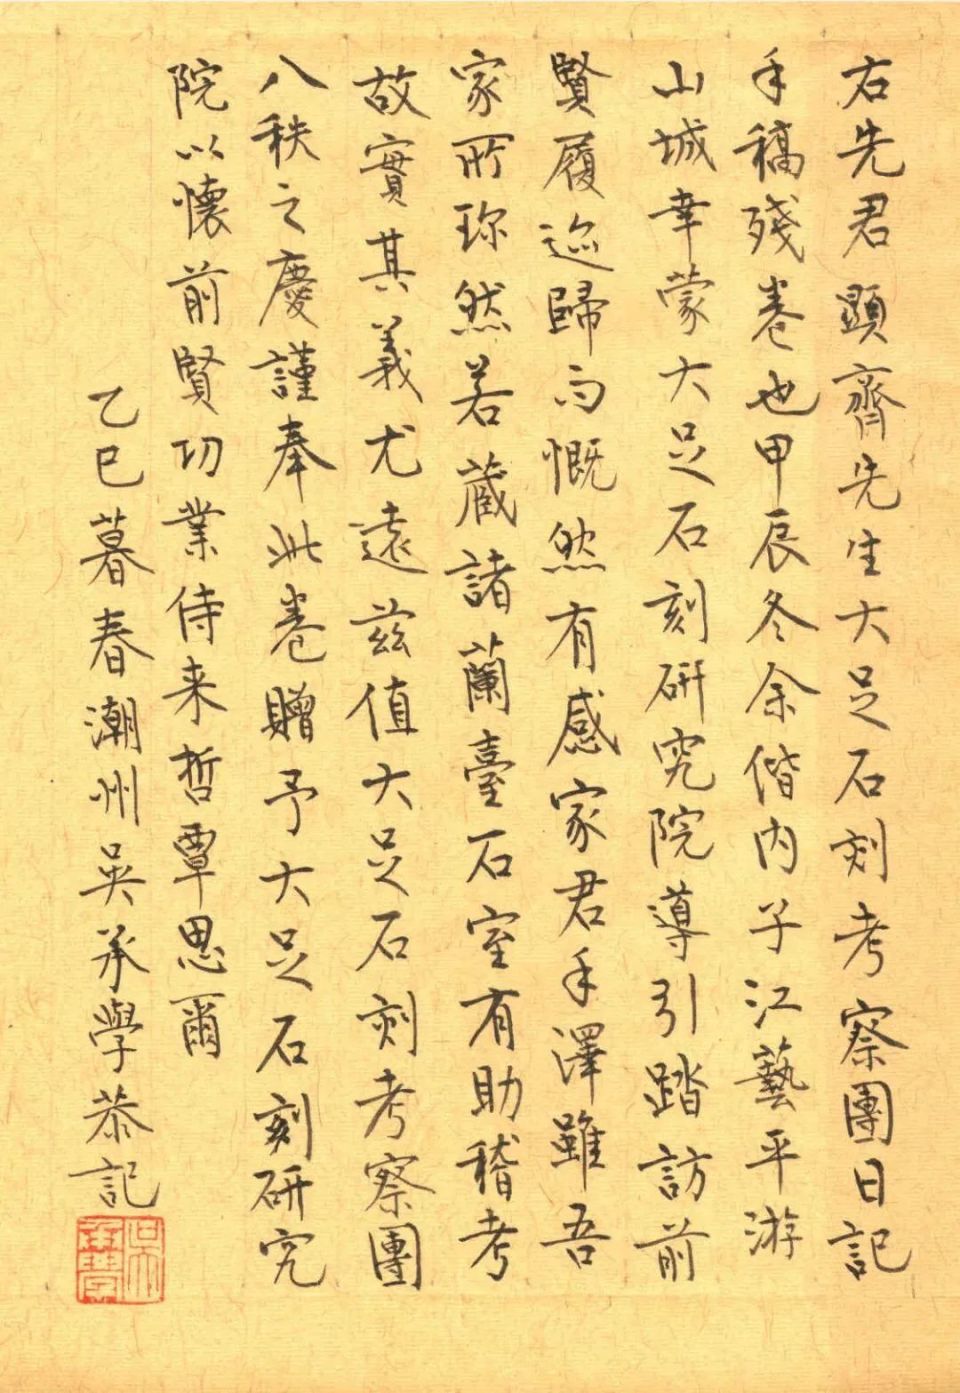 右先君顕齊先生大足石刻考察團日記
手稿殘卷也甲辰冬余偕內子江藝平游
山城幸蒙大足石刻研究院導引踏訪前
賢履迹歸而慨然有感家君手澤雖吾
家所珎然若蔵諸蘭臺石室有助稽考
故實其義尤遠茲值大足石刻考察團
八秩之慶謹奉此卷贈予大足石刻研究
院以懷前賢功業侍来哲覃思爾
乙巳暮春潮州吳承學恭記
吳承學